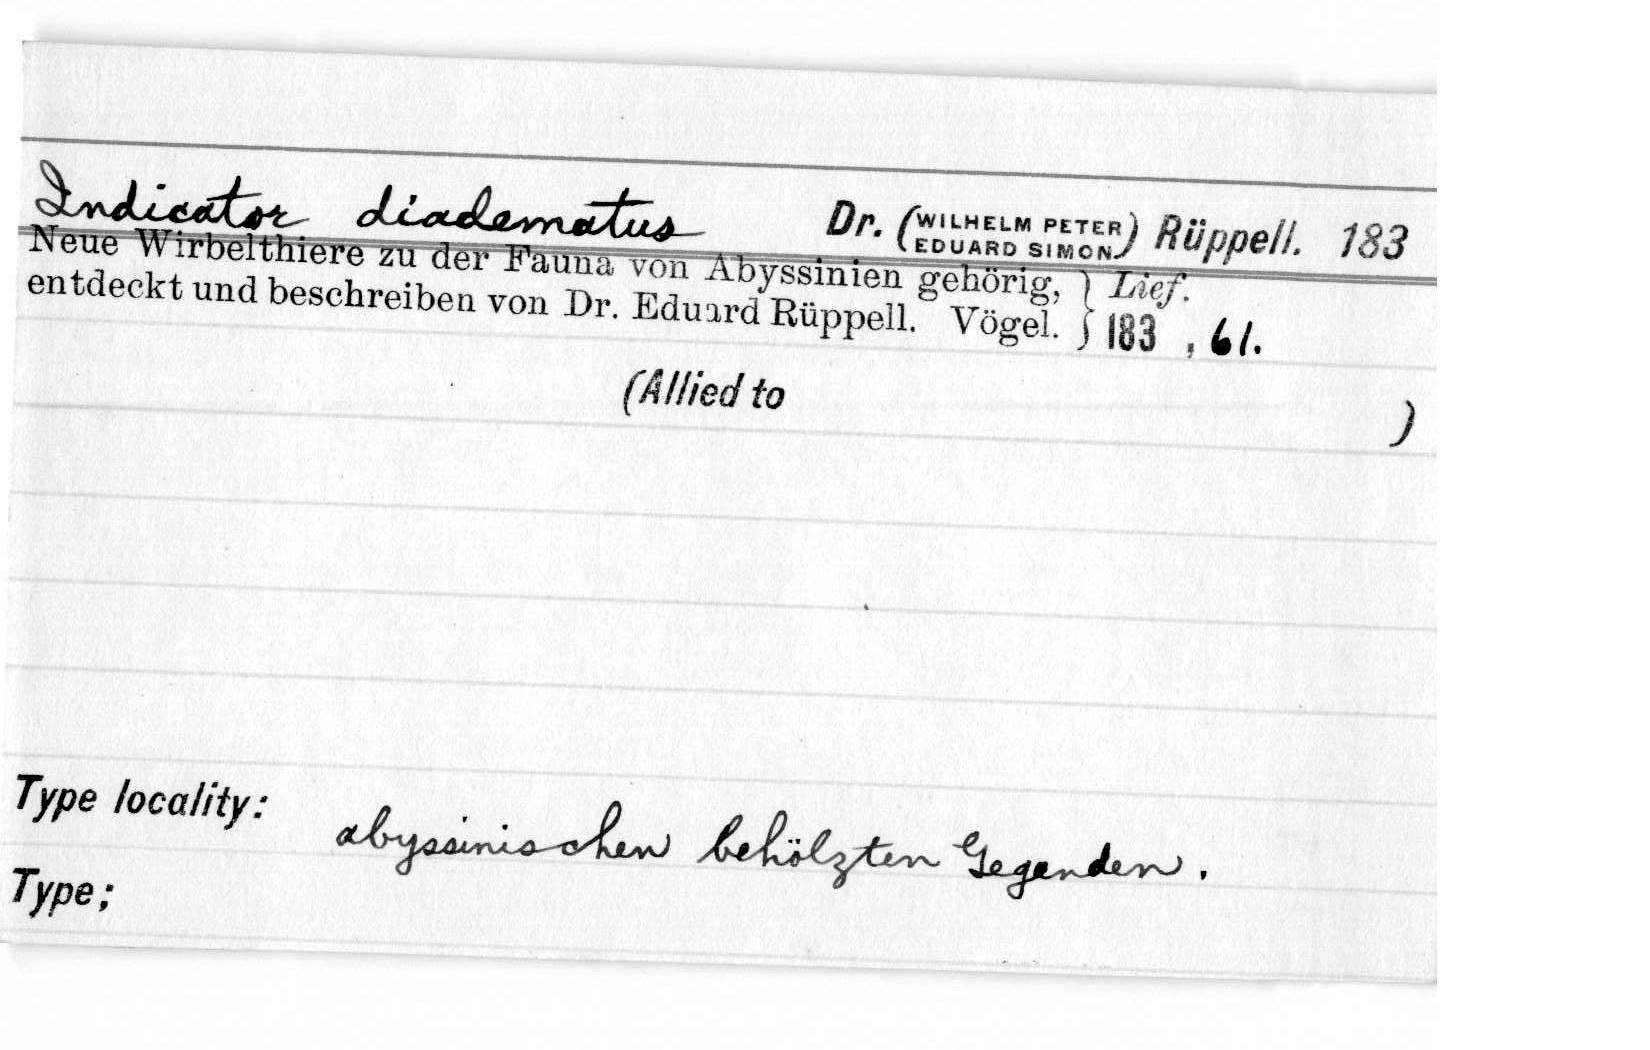 Indicator diadematus Dr. (WILHELM PETER EDUARD SIMON) Rüppell. 183
Neue Wirbelthiere zu der Fauna von Abyssinien gehörig, } Lief.
entdeckt und beschreiben von Dr. Eduard Rüppell. Vögel. } 183 , 61.
(Allied to )
Type locality: abyssinischen behölzten Gegenden.
Type;